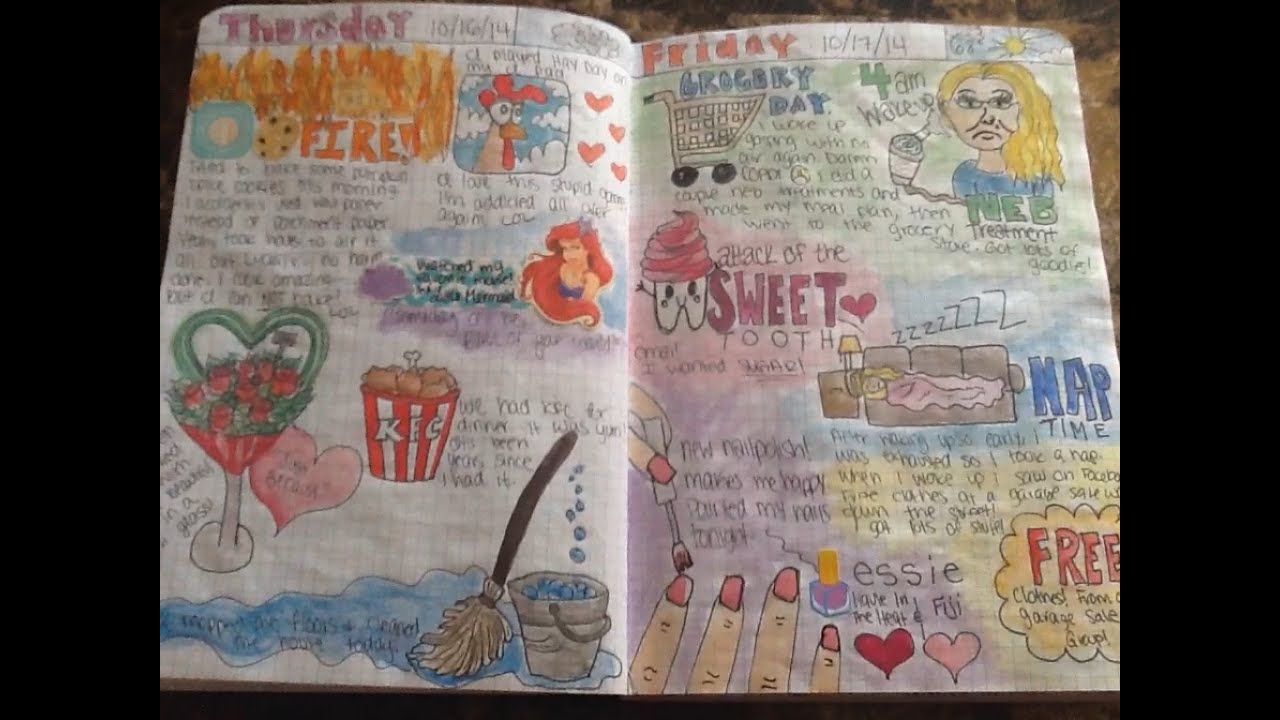 Thursday 10/16/14
FIRE!
tried to bake some pumpkin
spice cookies this morning.
I accidently used wax paper
instead of parchment paper.
Yeah took hours to air it
all out luckily no harm
done. I look amazing
but I can NOT bake! LOL
I played Hay Day on
my iPad
I love this stupid game
I'm addicted all over
again. LOL
Watched my
favorite movie!
Little Mermaid
"Someday I'll be
part of your world"
in a
glass!
"Just
Because"
KFC
We had KFC for
dinner it was yum!
It's been
years since
I had it.
mopping the floors & cleaned
the house today.
Friday 10/17/14 68°
GROCERY
DAY.
4am
Wake up
I woke up
gasping with no
air again. Damn
COPD I did a
couple neb treatments and
made my meal plan, then
went to the grocery
store. Got lots of
goodies!
NEB
Treatment
attack of the
SWEET
TOOTH
omg!
I wanted SUGAR!
ZZZZZZZ
NAP
TIME
After waking up so early, I
was exhausted so I took a nap.
When I woke up I saw on Facebo
clothes at a garage sale
down the street!
got lots of stuff!
new nailpolish!
makes me happy
Painted my nails
tonight.
essie
Haute In
The Heat &
Fiji
FREE
Clothes! From a
garage Sale
Group!